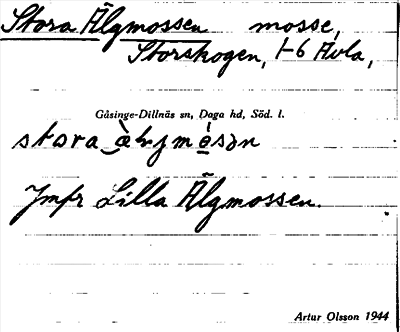 Stora Älgmossen mosse,
Storskogen, 1-6 Åvla,
Gåsinge-Dillnäs sn, Daga hd, Söd. l.
stora
Jmfr Lilla Älgmossen.
Artur Olsson 1944